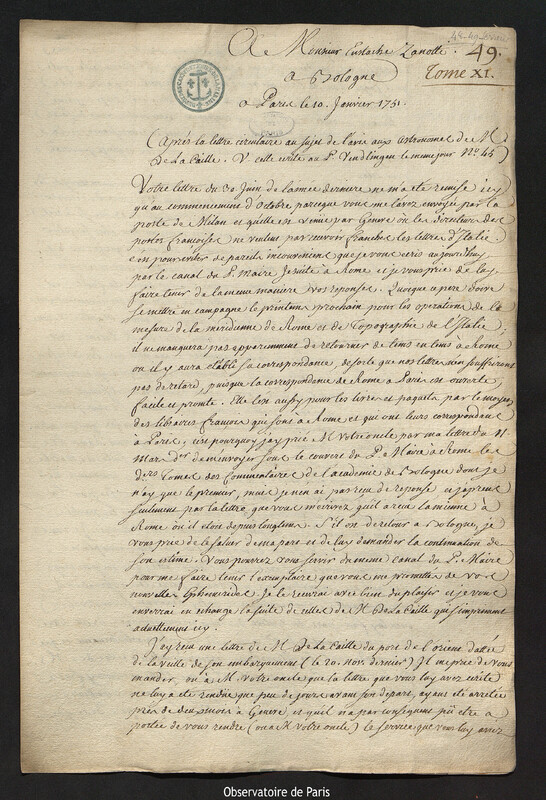 A Monsieur Eustache Zanotti.
49.
Tome XI.
a Bologne
a Paris le 10. Janvier 1751.
(Après la lettre circulaire au sujet de l'avis aux astronomes de M.
De La Caille. V. cette ecrite au P. Vendlingen le meme jour No. 45)
Votre lettre du 30 Juin de l'année derniere ne m'a été remise icy
qu'au commencement d'Octobre parceque vous me l'avez envoyée par la
poste de Milan et qu'elle est venue par Geneve où les directeurs des
postes françoises ne veulent pas recevoir franches les lettres d'Italie
c'est pour éviter de pareils inconveniens que je vous ecris aujourd'huy
par le canal du P. Maire Jesuite à Rome et je vous prie de luy
faire tenir de la meme maniere vos reponses. Quoique ce pere doive
se mettre en campagne le printems prochain pour les operations de la
mesure de la meridienne de Rome et de Topographie de l'Italie;
il ne manquera pas apparemment de retourner de tems en tems à Rome
ou il y aura etabli sa correspondance, de sorte que nos lettres n'en souffriront
pas de retard, puisque la correspondance de Rome a Paris est ouverte,
facile et promte. Elle l'est aussy pour les livres et paquets par le moyen
des libraires françois qui sont à Rome et qui ont leurs correspondans
à Paris; c'est pourquoy j'ay prié M. votre oncle par ma lettre du 11
Mars der. de m'envoyer sous le couvert du P. Maire à Rome les
ders. Tomes des Commentaires de l'academie de Bologne dont je
n'ay que le premier, mais je n'en ai pas reçu de reponse et j'aprens
seulement par la lettre que vous m'ecrivez qu'il a reçu la mienne à
Rome où il etoit depuis longtems. S'il est de retour a Bologne, je
vous prie de le saluer de ma part et de luy demander la continuation de
son estime. Vous pourrez vous servir du meme canal du P. Maire
pour me faire tenir l'exemplaire que vous me promettez de vos
nouvelles Ephemerides. Je le recevrai avec bien du plaisir et je vous
enverrai en echange la suite de celles de M. De La Caille qui s'impriment
actuellement icy.
J'ay reçu une lettre de M. De la Caille du port de l'orient dattée
de la veille de son embarquement (le 20. Nov. dernier) Il me prie de vous
mander, ou à M. votre oncle que la lettre que vous luy avez ecrite
ne luy a eté rendue que peu de jours avant son depart, ayant eté arretée
près de deux mois à Geneve, et qu'il n'a par consequent pû etre a
portée de vous rendre (ou a M votre oncle) le service que vous luy aviez
Observatoire de Paris